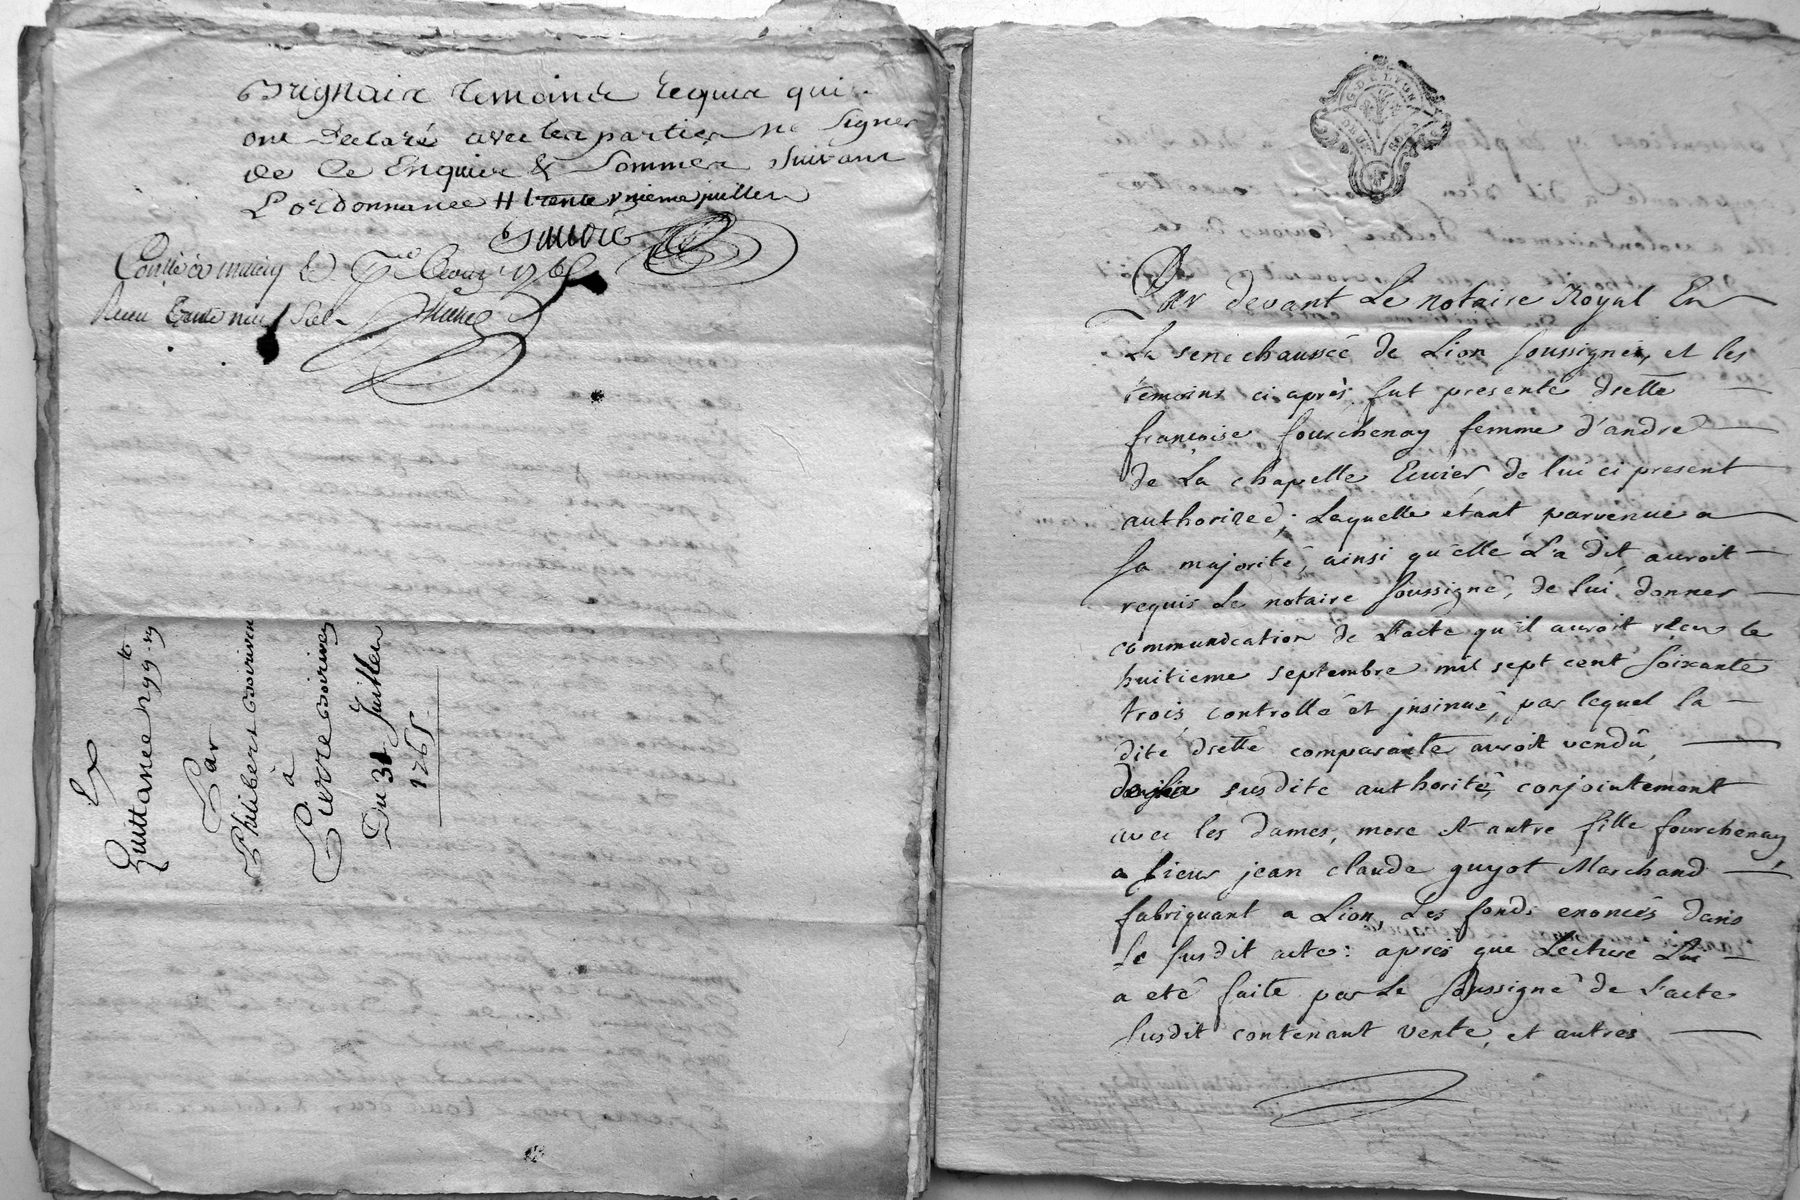 temoins requis qui
ont declaré avec les parties ne signer
de ce enquis & sommés suivant
L'ordonnance # trente unieme juillet
Controllé a
Recu trente neuf sols
Quittance
Par
Philibert
à
Pierre
Du 31 Juillet
1765
G. DE LYON
Par devant Le notaire Royal En
La senechaussée de Lion soussigné, et les
temoins ci après, fut presente dlle
françoise fourchenay femme d'andré
de La chapelle Ecuier, de lui ci present
authorizée; Laquelle étant parvenue a
sa majorité, ainsi qu'elle L'a dit, auroit
requis Le notaire soussigné, de lui donner
communication de L'acte qu'il auroit reçu le
huitieme septembre mil sept cent soixante
trois controllé et insinué, par lequel la
dite dlle comparante auroit vendû,
de la susdite authorité, conjointement
avec les dames, mere et autre fille fourchenay
a sieur jean claude guyot Marchand
fabriquant a Lion, Les fonds enoncés dans
Le susdit acte: après que Lecture Lui
a eté faite par Le soussigné de L'acte
susdit contenant vente, et autres